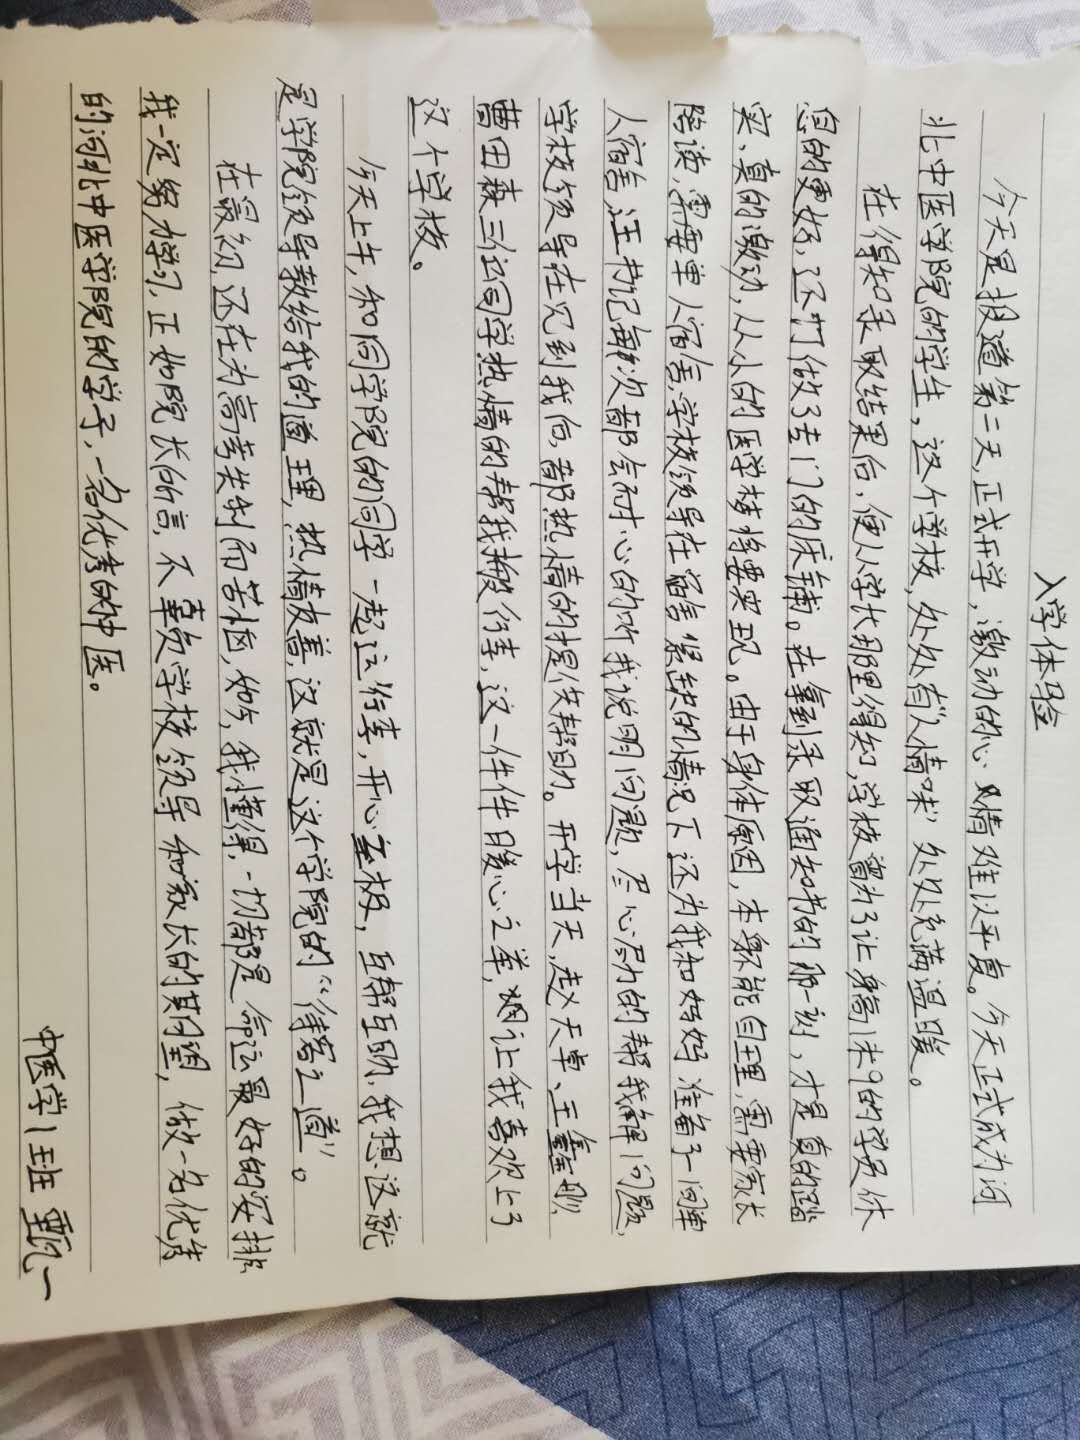 入学体验
今天是报道第二天,正式开学,激动的心 情难以平复。今天正式成为河
北中医学院的学生,这个学校,处处有"人情味"处处充满温暖。
在得知录取结果后,便从学长那里得知,学校曾为了让身高1米9的学员休
息的更好,还专门做了去门的床铺。在拿到录取通知书的那一刻,才是真的踏
实、真的激动,从小的医学梦将要实现。由于身体原因,本身能自理,需要家长
陪读,需要单人宿舍,学校领导在宿舍紧缺的情况下还为我和妈妈 准备了一间单
人宿舍,汪书记每次都会耐心的听我说明问题,尽心尽力的帮我解问题,
学校领导在见到我后,都热情的提供帮助。开学当天,赵天卓、王鑫刚、
曹田森三位同学热情的帮我搬行李,这一件件暖心之举,让我喜欢上了
这个学校。
今天上午,和同学院的同学一起运行李,开心至极,互帮互助,我想,这就
是学院领导教给我的道理,热情友善,这就是这个学院的"待客之道"。
在最初,还在为高考失利而苦恼,如今,我懂得,一切都是命运最好的安排
我一定努力学习,正如院长所言,不辜负学校领导和家长的期望,做一名优秀
的河北中医学院的学子,一名优秀的中医。
中医学1班 甄一